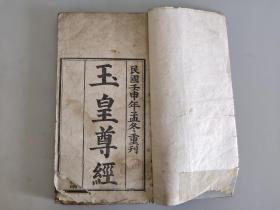 民國壬申年孟冬重刊
玉皇尊經